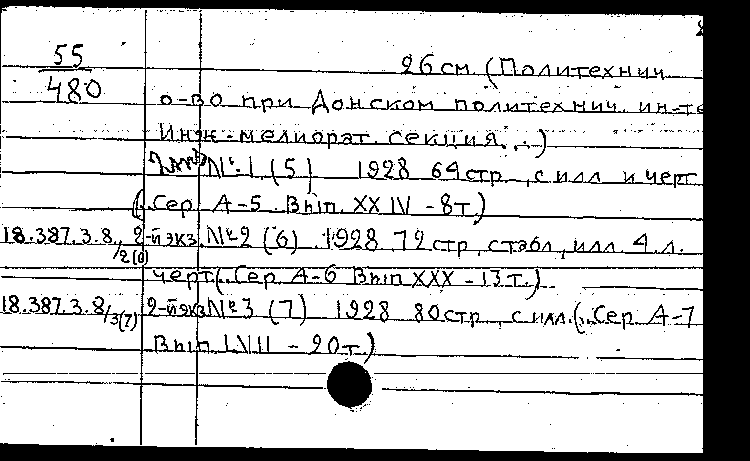 55
480
26 см. (Политехнич.
о-во при Донском политехнич. ин-те
Инж.-мелиорат. секция...)
№ 1 (5) 1928 64 стр., с илл. и черт
(„Сер. А-5. Вып. XXIV - 8т.)
18.387.3.8/2(6) 2-й экз. № 2 (6) 1928 72 стр., с табл., илл. 4 л.
черт. („Сер. А-6 Вып. XXX - 13 т.)
18.387.3.8/3(7) 2-й экз № 3 (7) 1928 80 стр., с илл. („Сер. А-7
Вып. LVII - 20 т.)